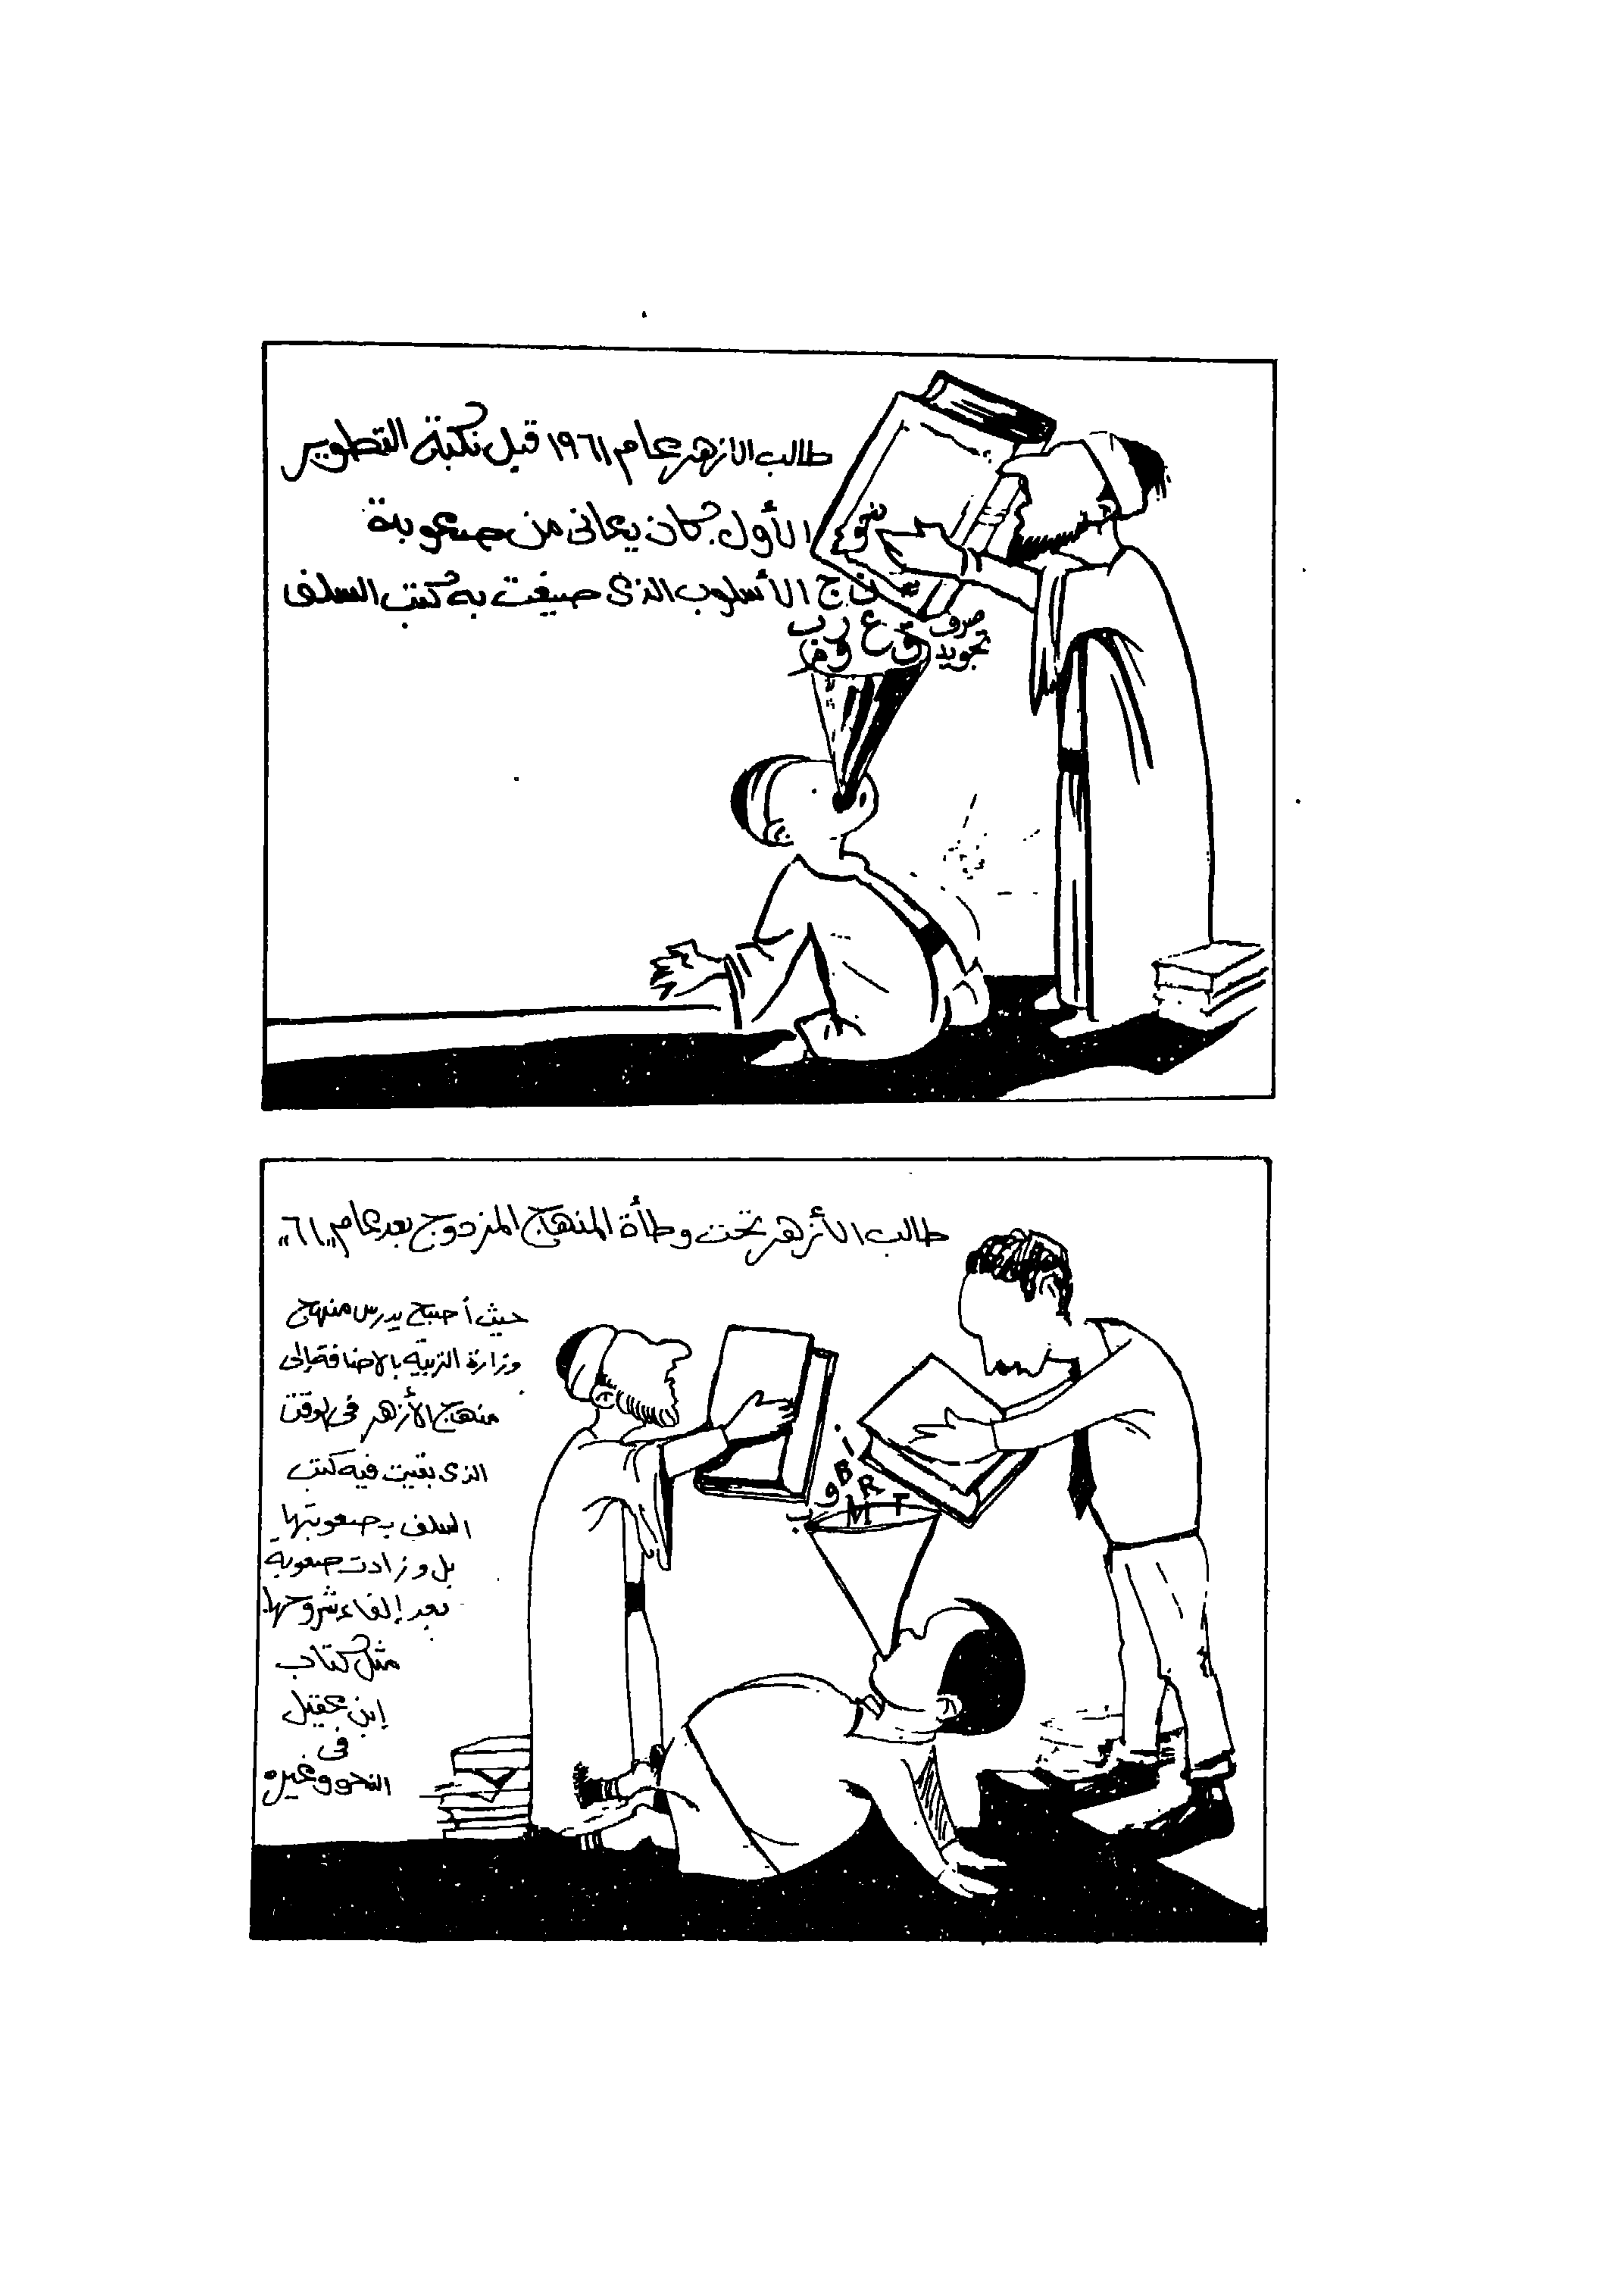 طالب الازهر عام ١٩٦١ قبل نكبة التطوير
الأول. كان يعانى من صعوبة
الأسلوب الذى صيغت به كتب السلف
نحو
صرف
تجويد
ن ج
ب ر ع ق
م و
طالب الأزهر تحت وطأة المنهاج المزدوج بعد عام "٦١"
حيث أصبح يدرس منهج
وزارة التربية بالاضافة إلى
منهاج الأزهر فى الوقت
الذى بقيت فيه كتب
السلف بصعوبتها
بل وزادت صعوبة
بعد إلغاء شروحها
مثل كتاب
إبن عقيل
فى
النحو وغيره
ا
B
و R
ب M T